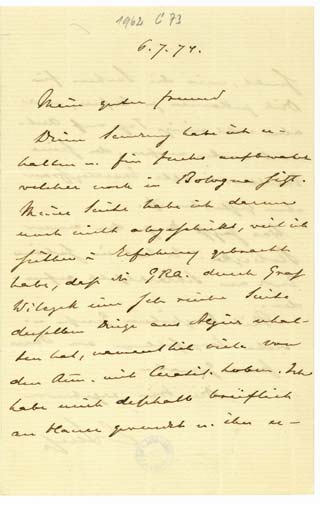 1962 C 73
6.7.74.
Mein guter Freund
Deine Sendung habe ich er-
halten u. für Fuchs aufbewahrt
welcher noch in Bologna sitzt.
Meine Suite habe ich darum
noch nicht abgeschickt, weil ich
früher in Erfahrung gebracht
habe, daß die GRA. durch Graf
Wilczek eine sehr reiche Suite
derselben Dinge aus Algier erhal-
ten hat, namentlich viele von
den Am. mit Ceratit. Loben. Ich
habe mich deßhalb brieflich
an Hauer gewendet u. ihn er-